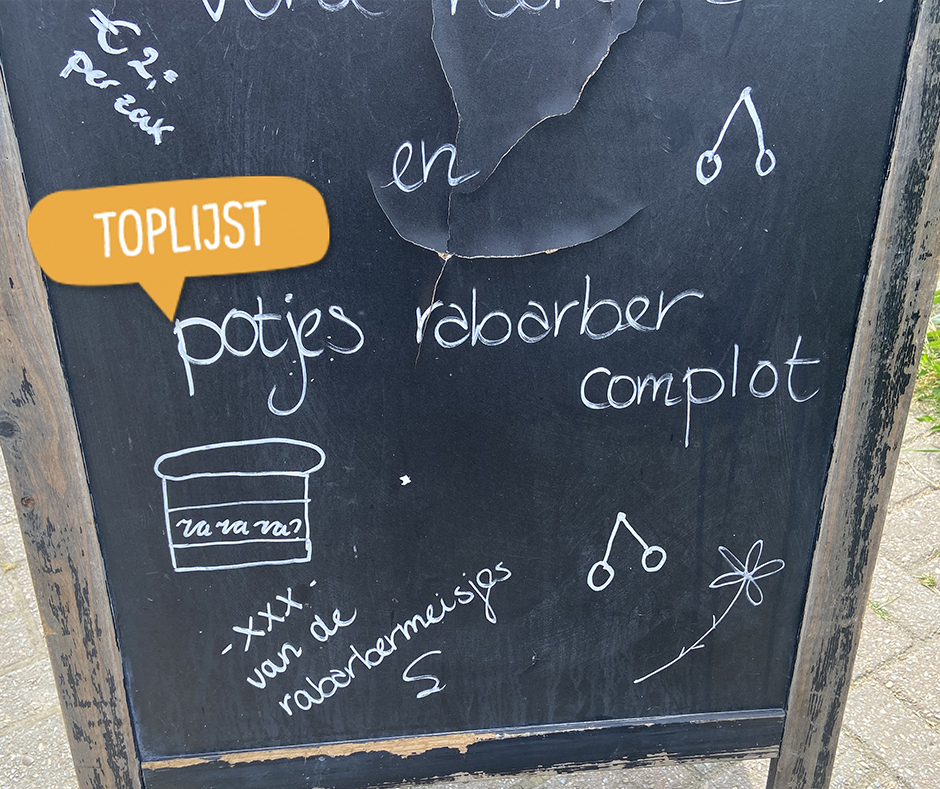 € 2,-
per zak
en
TOPLIJST
potjes rabarber
complot
ra ra ra?
-xxx-
van de
rabarbermeisjes